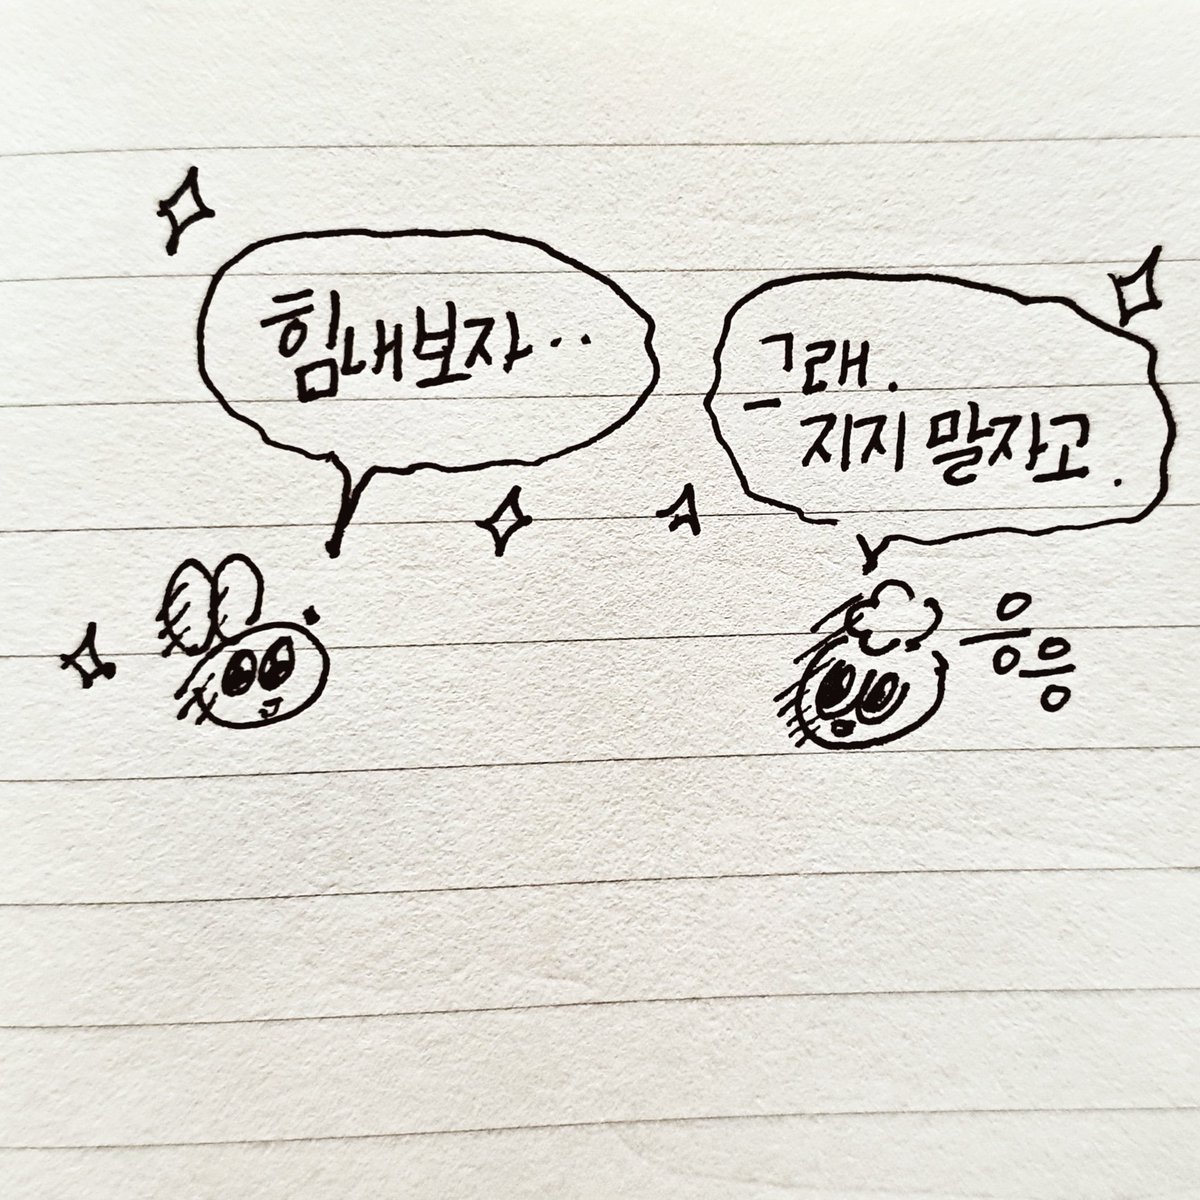 힘내보자..
그래.
지지 말자고.
응응